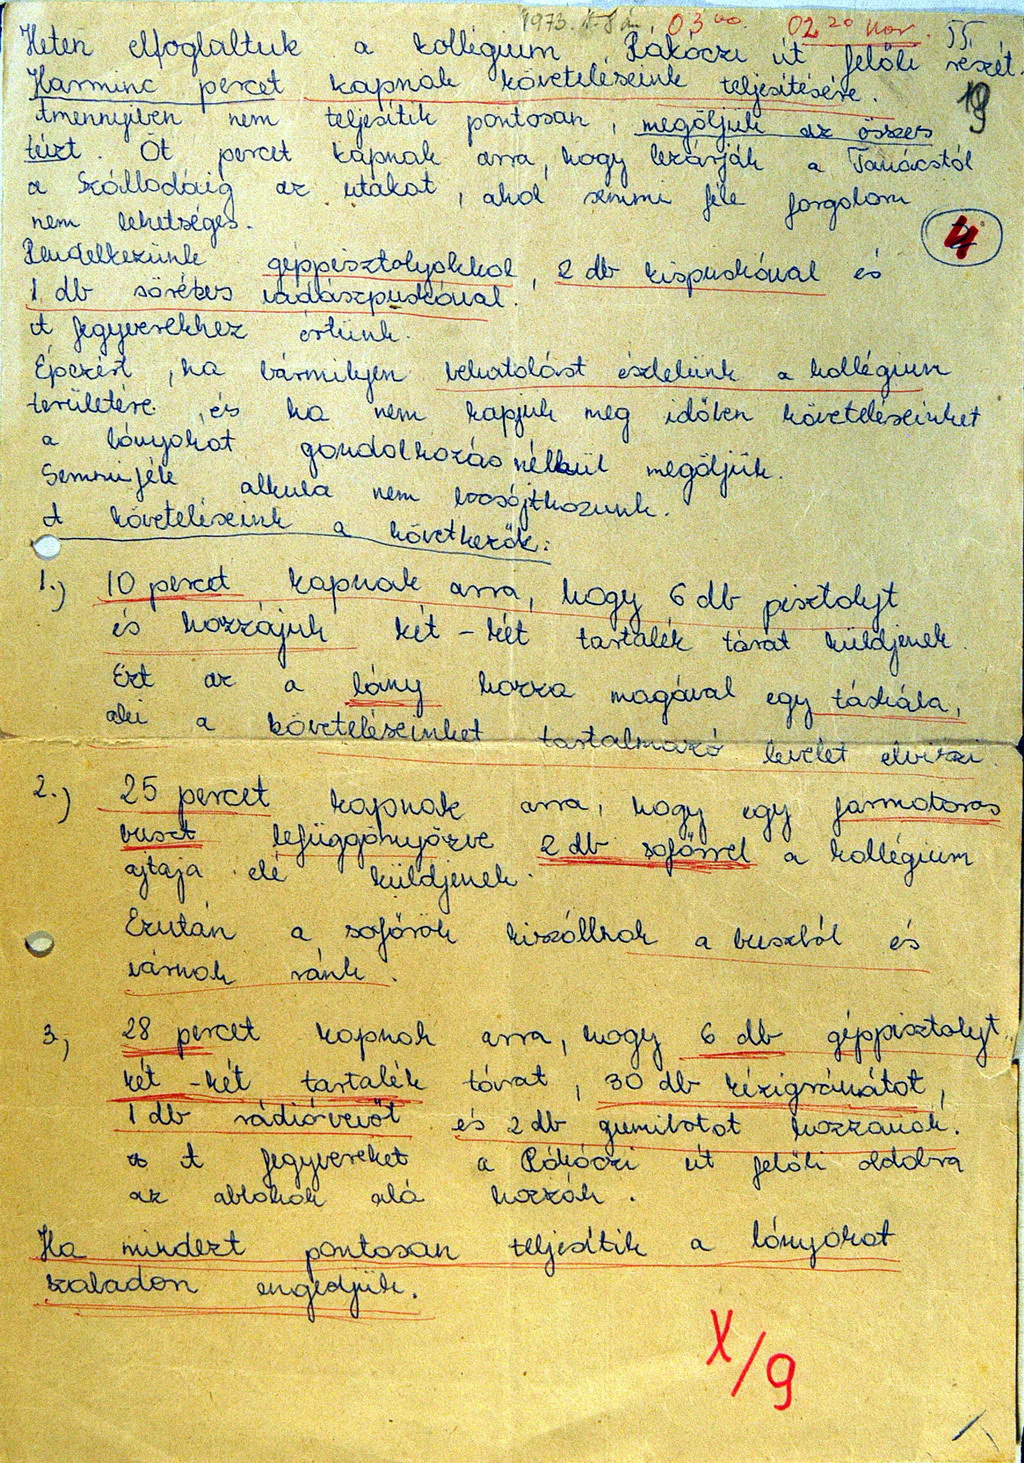 1973. 03 00. 02 20 kor. 55.
Heten elfoglaltuk a kollégium Rákóczi út felöli részét.
Harminc percet kapnak követeléseink teljesítésére. 19
Amennyiben nem teljesítik pontosan, megöljük az összes
túszt. Öt percet kapnak arra, hogy lezárják a Tanácstól
a Szállodáig az utakat, ahol semmi féle forgalom
nem lehetséges.
4
Rendelkezünk géppisztolyokkal, 2 db kispuskával és
1 db sörétes vadászpuskával.
A fegyverekhez értünk.
Épezért, ha bármilyen behatolást észlelünk a kollégium
területére, és ha nem kapjuk meg időben követeléseinket
a lányokat gondolkozás nélkül megöljük.
Semmiféle alkuba nem bocsájtkozunk.
A követeléseink a következők:
1.) 10 percet kapnak arra, hogy 6 db pisztolyt
és hozzájuk két-két tartalék tárat küldjenek.
Ezt az a lány hozza magával egy táskába,
aki a követeléseinket tartalmazó levelet elviszi.
2.) 25 percet kapnak arra, hogy egy farmotoros
buszt lefüggönyözve 2 db sofőrrel a kollégium
ajtaja elé küldjenek.
Ezután a sofőrök kiszállnak a buszból és
várnak ránk.
3, 28 percet kapnak arra, hogy 6 db géppisztolyt
két-két tartalék tárat, 30 db kézigránátot,
1 db rádióvevőt és 2 db gumibotot hozzanak.
A fegyvereket a Rákóczi út felöli oldalra
az ablakok alá hozzák.
Ha mindezt pontosan teljesítik a lányokat
szabadon engedjük.
X/9